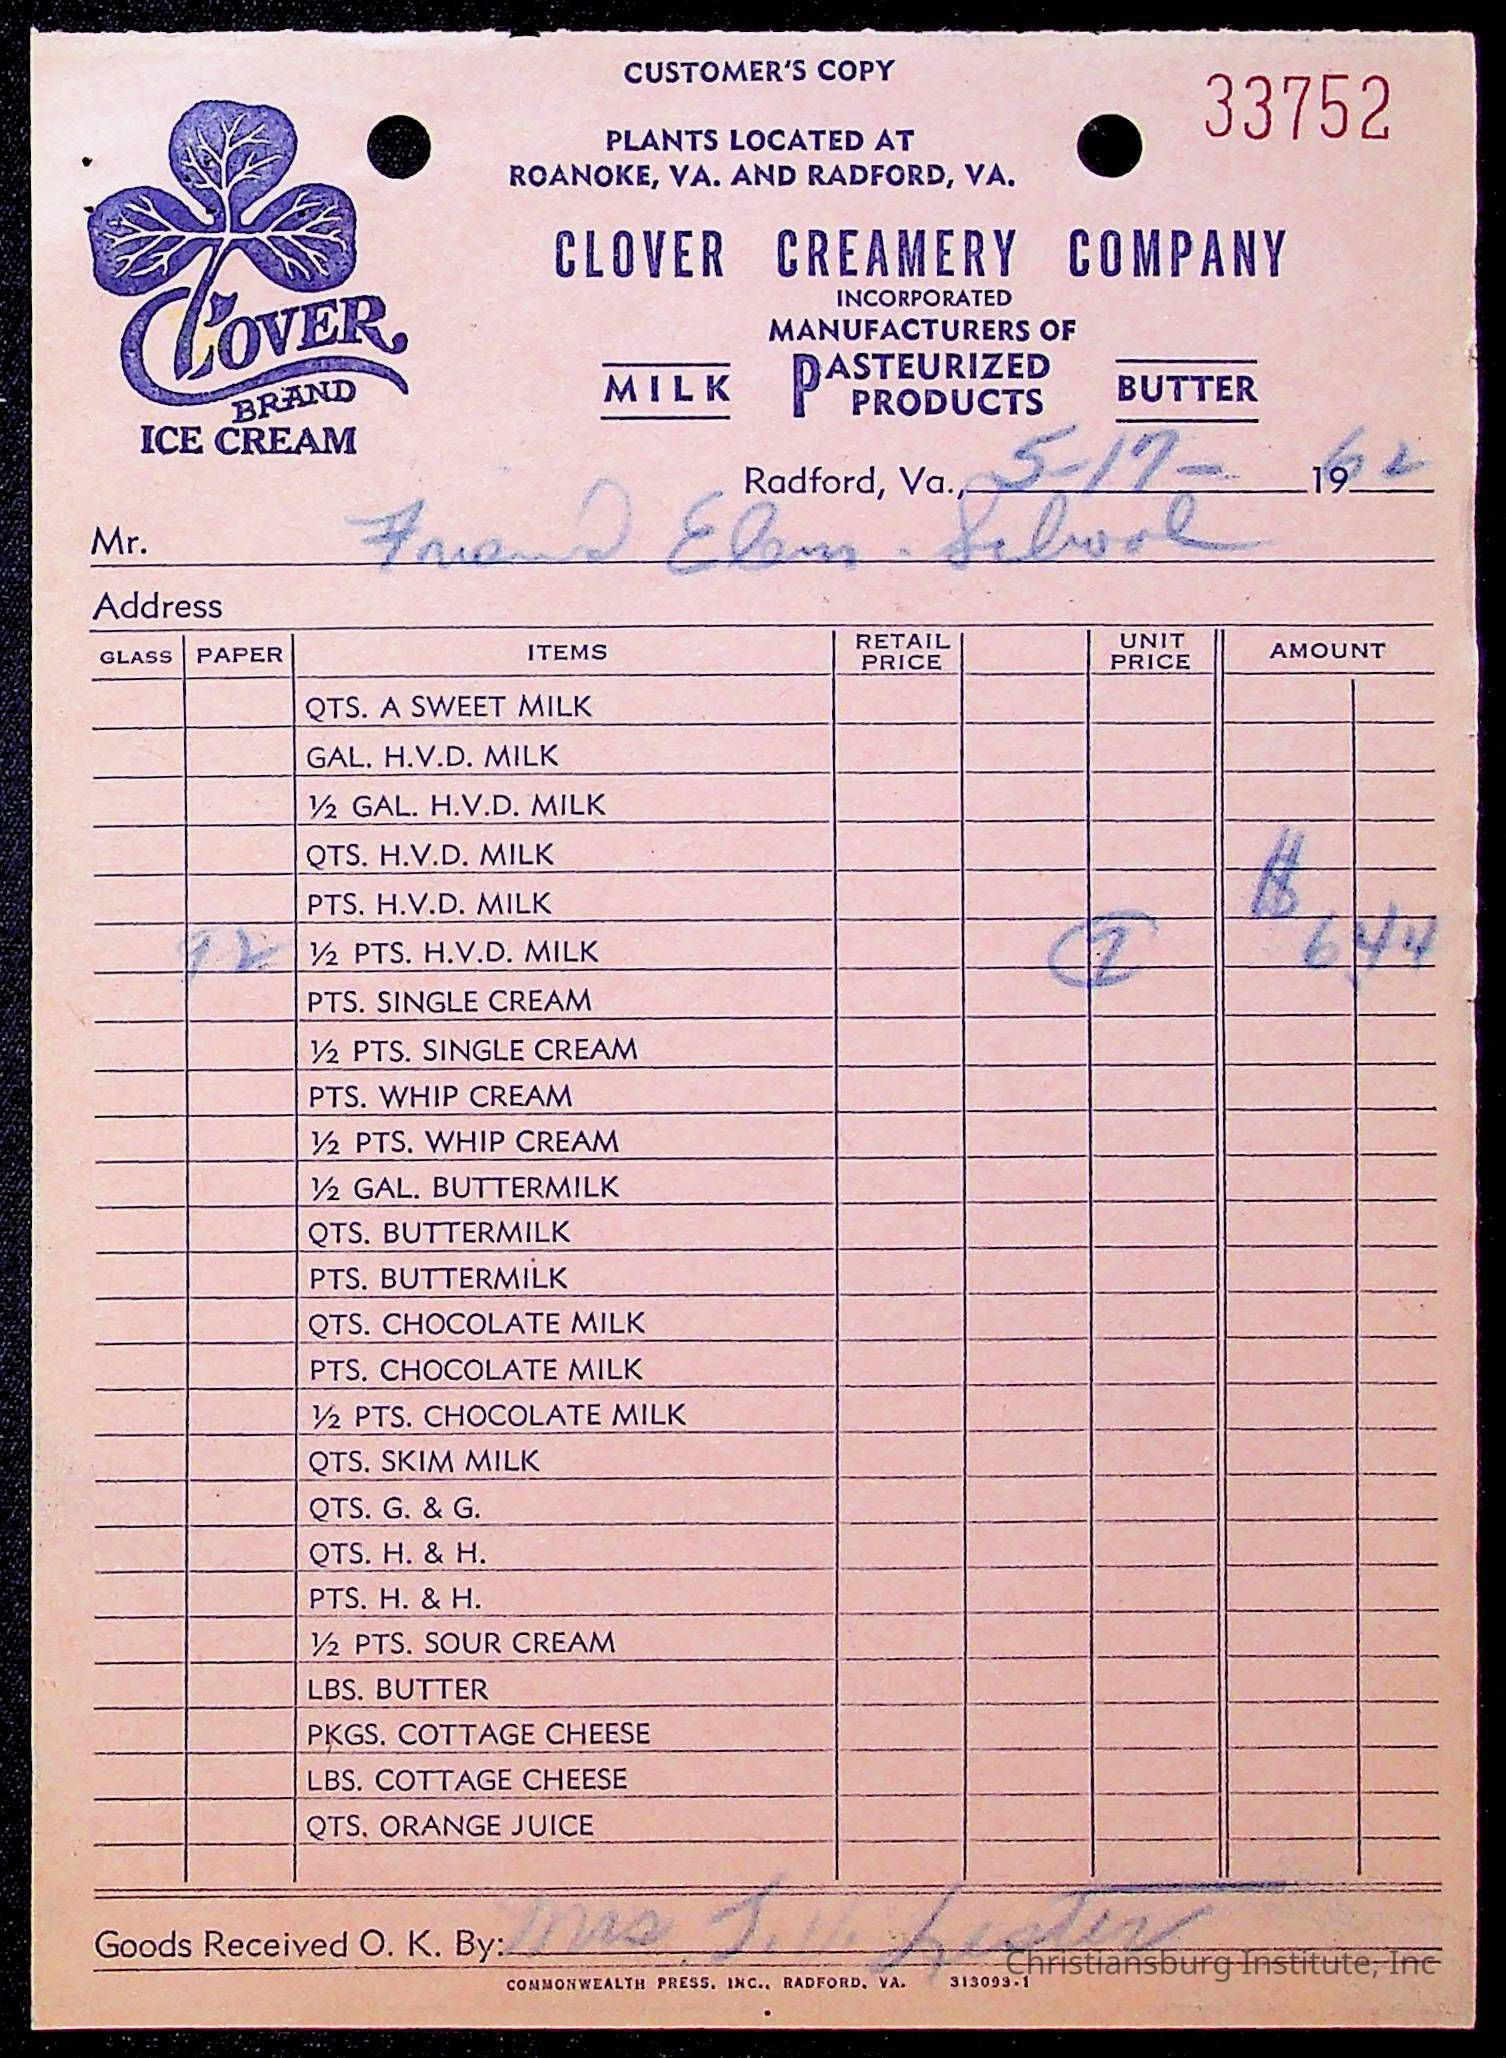 CUSTOMER'S COPY
33752
PLANTS LOCATED AT
ROANOKE, VA. AND RADFORD, VA.
CLOVER CREAMERY COMPANY
INCORPORATED
MANUFACTURERS OF
MILK PASTEURIZED PRODUCTS BUTTER
CLOVER
BRAND
ICE CREAM
Radford, Va., 5-17- 1962
Mr. Friend Elem. School
Address
GLASS PAPER ITEMS RETAIL PRICE UNIT PRICE AMOUNT
QTS. A SWEET MILK
GAL. H.V.D. MILK
½ GAL. H.V.D. MILK
QTS. H.V.D. MILK
PTS. H.V.D. MILK $
92 ½ PTS. H.V.D. MILK 7 6 44
PTS. SINGLE CREAM
½ PTS. SINGLE CREAM
PTS. WHIP CREAM
½ PTS. WHIP CREAM
½ GAL. BUTTERMILK
QTS. BUTTERMILK
PTS. BUTTERMILK
QTS. CHOCOLATE MILK
PTS. CHOCOLATE MILK
½ PTS. CHOCOLATE MILK
QTS. SKIM MILK
QTS. G. & G.
QTS. H. & H.
PTS. H. & H.
½ PTS. SOUR CREAM
LBS. BUTTER
PKGS. COTTAGE CHEESE
LBS. COTTAGE CHEESE
QTS. ORANGE JUICE
Goods Received O. K. By: Mrs Lester
Christiansburg Institute, Inc
COMMONWEALTH PRESS, INC., RADFORD, VA. 313093-1